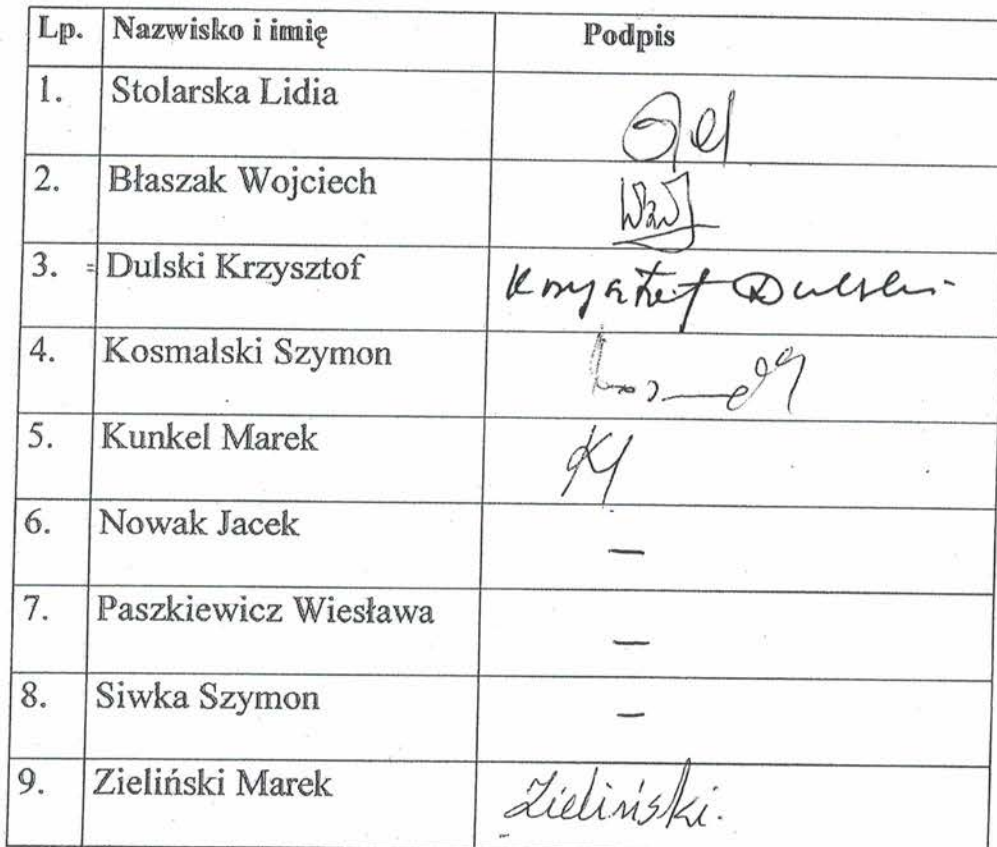 Lp. Nazwisko i imię Podpis
1. Stolarska Lidia
2. Błaszak Wojciech
3. Dulski Krzysztof Krzysztof Dulski
4. Kosmalski Szymon
5. Kunkel Marek
6. Nowak Jacek —
7. Paszkiewicz Wiesława —
8. Siwka Szymon —
9. Zieliński Marek Zieliński.